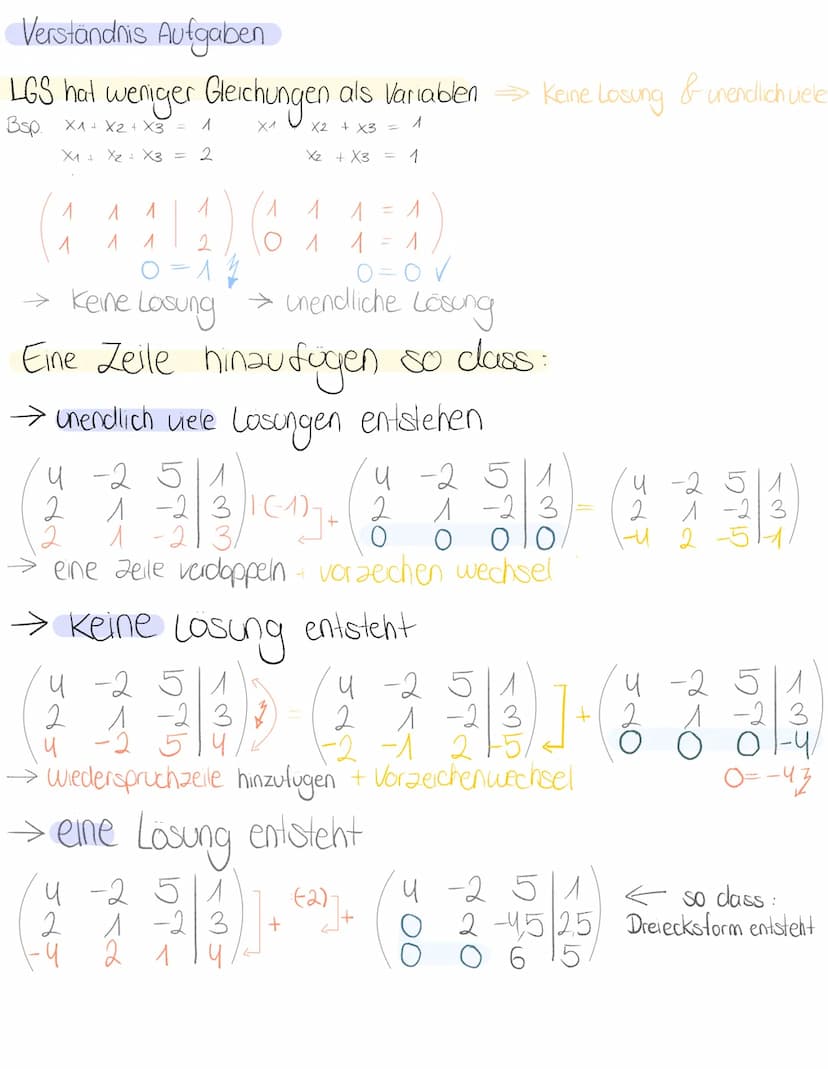 Verständnis Aufgaben
LGS hat weniger Gleichungen als Variablen ⇒ Keine Losung & unendlich viele
Bsp. x1 + x2 + x3 = 1 x1 x2 + x3 = 1
x1 + x2 + x3 = 2 x2 + x3 = 1
( 1 1 1 | 1 ) ( 1 1 1 = 1 )
( 1 1 1 | 2 ) ( 0 1 1 = 1 )
0 = 1 ↯ 0 = 0 ✓
→ Keine Losung → unendliche Lösung
Eine Zeile hinzufügen so dass:
→ unendlich viele Losungen entstehen
( 4 -2 5 | 1 ) ( 4 -2 5 | 1 ) ( 4 -2 5 | 1 )
( 2 1 -2 | 3 ) | (-1) ] + ( 2 1 -2 | 3 ) = ( 2 1 -2 | 3 )
( 2 1 -2 | 3 ) ( 0 0 0 | 0 ) ( -4 2 -5 | -1 )
→ eine Zeile verdoppeln + vorzechen wechsel
→ Keine Lösung entsteht
( 4 -2 5 | 1 ) ( 4 -2 5 | 1 ) ( 4 -2 5 | 1 )
( 2 1 -2 | 3 ) ↯ = ( 2 1 -2 | 3 ) ] + ( 2 1 -2 | 3 )
( 4 -2 5 | 4 ) ( -2 -1 2 | -5 ) ( 0 0 0 | -4 )
→ Wiederspruchzeile hinzufugen + Vorzeichenwechsel 0 = -4 ↯
→ eine Lösung entsteht
( 4 -2 5 | 1 ) (-2) ( 4 -2 5 | 1 ) ← so dass:
( 2 1 -2 | 3 ) ] + ] + ( 0 2 -4,5 | 2,5 ) Dreiecksform entsteht
( -4 2 1 | 4 ) ( 0 0 6 | 5 )